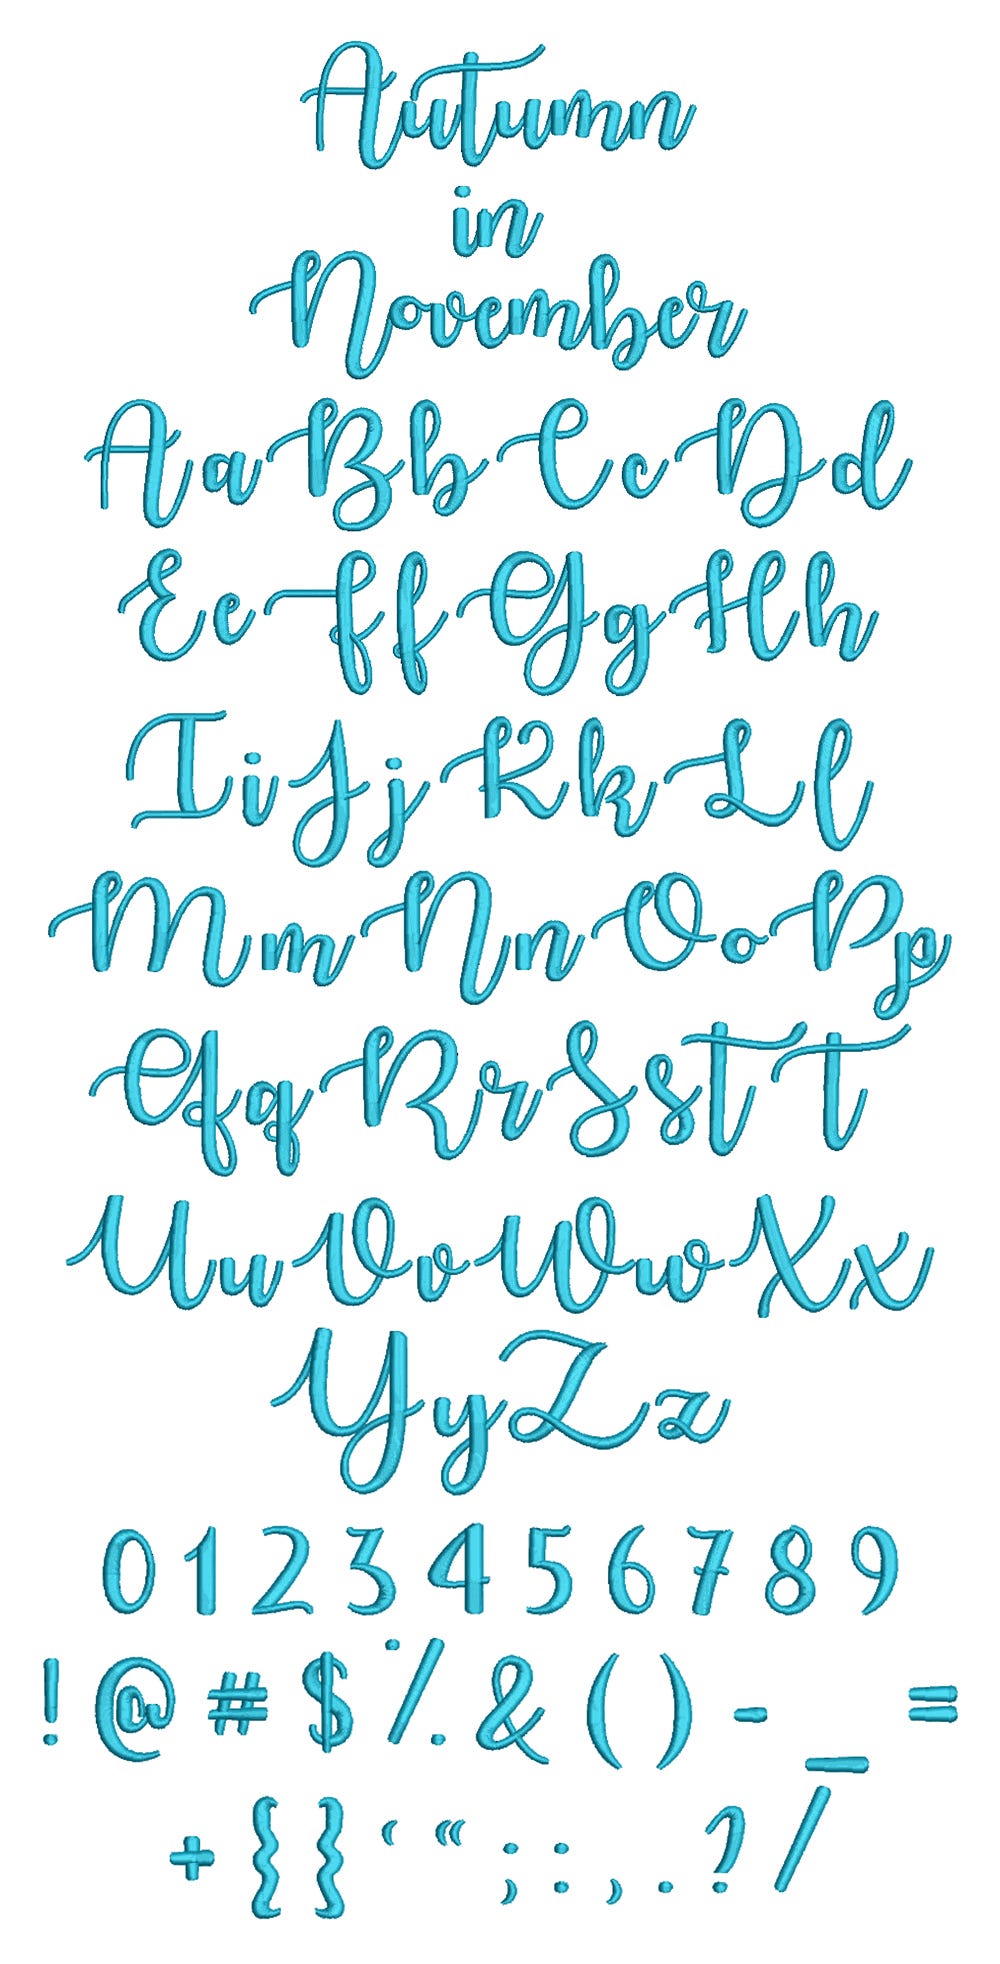 Autumn
in
November
AaBbCcDd
EeFfGgHh
IiJjKkLl
MmNnOoPp
QqRrSsTT
UuVvWwXx
YyZz
0 1 2 3 4 5 6 7 8 9
! @ # $ % & ( ) - _ =
+ { } ‘ “ ; : , . ? /